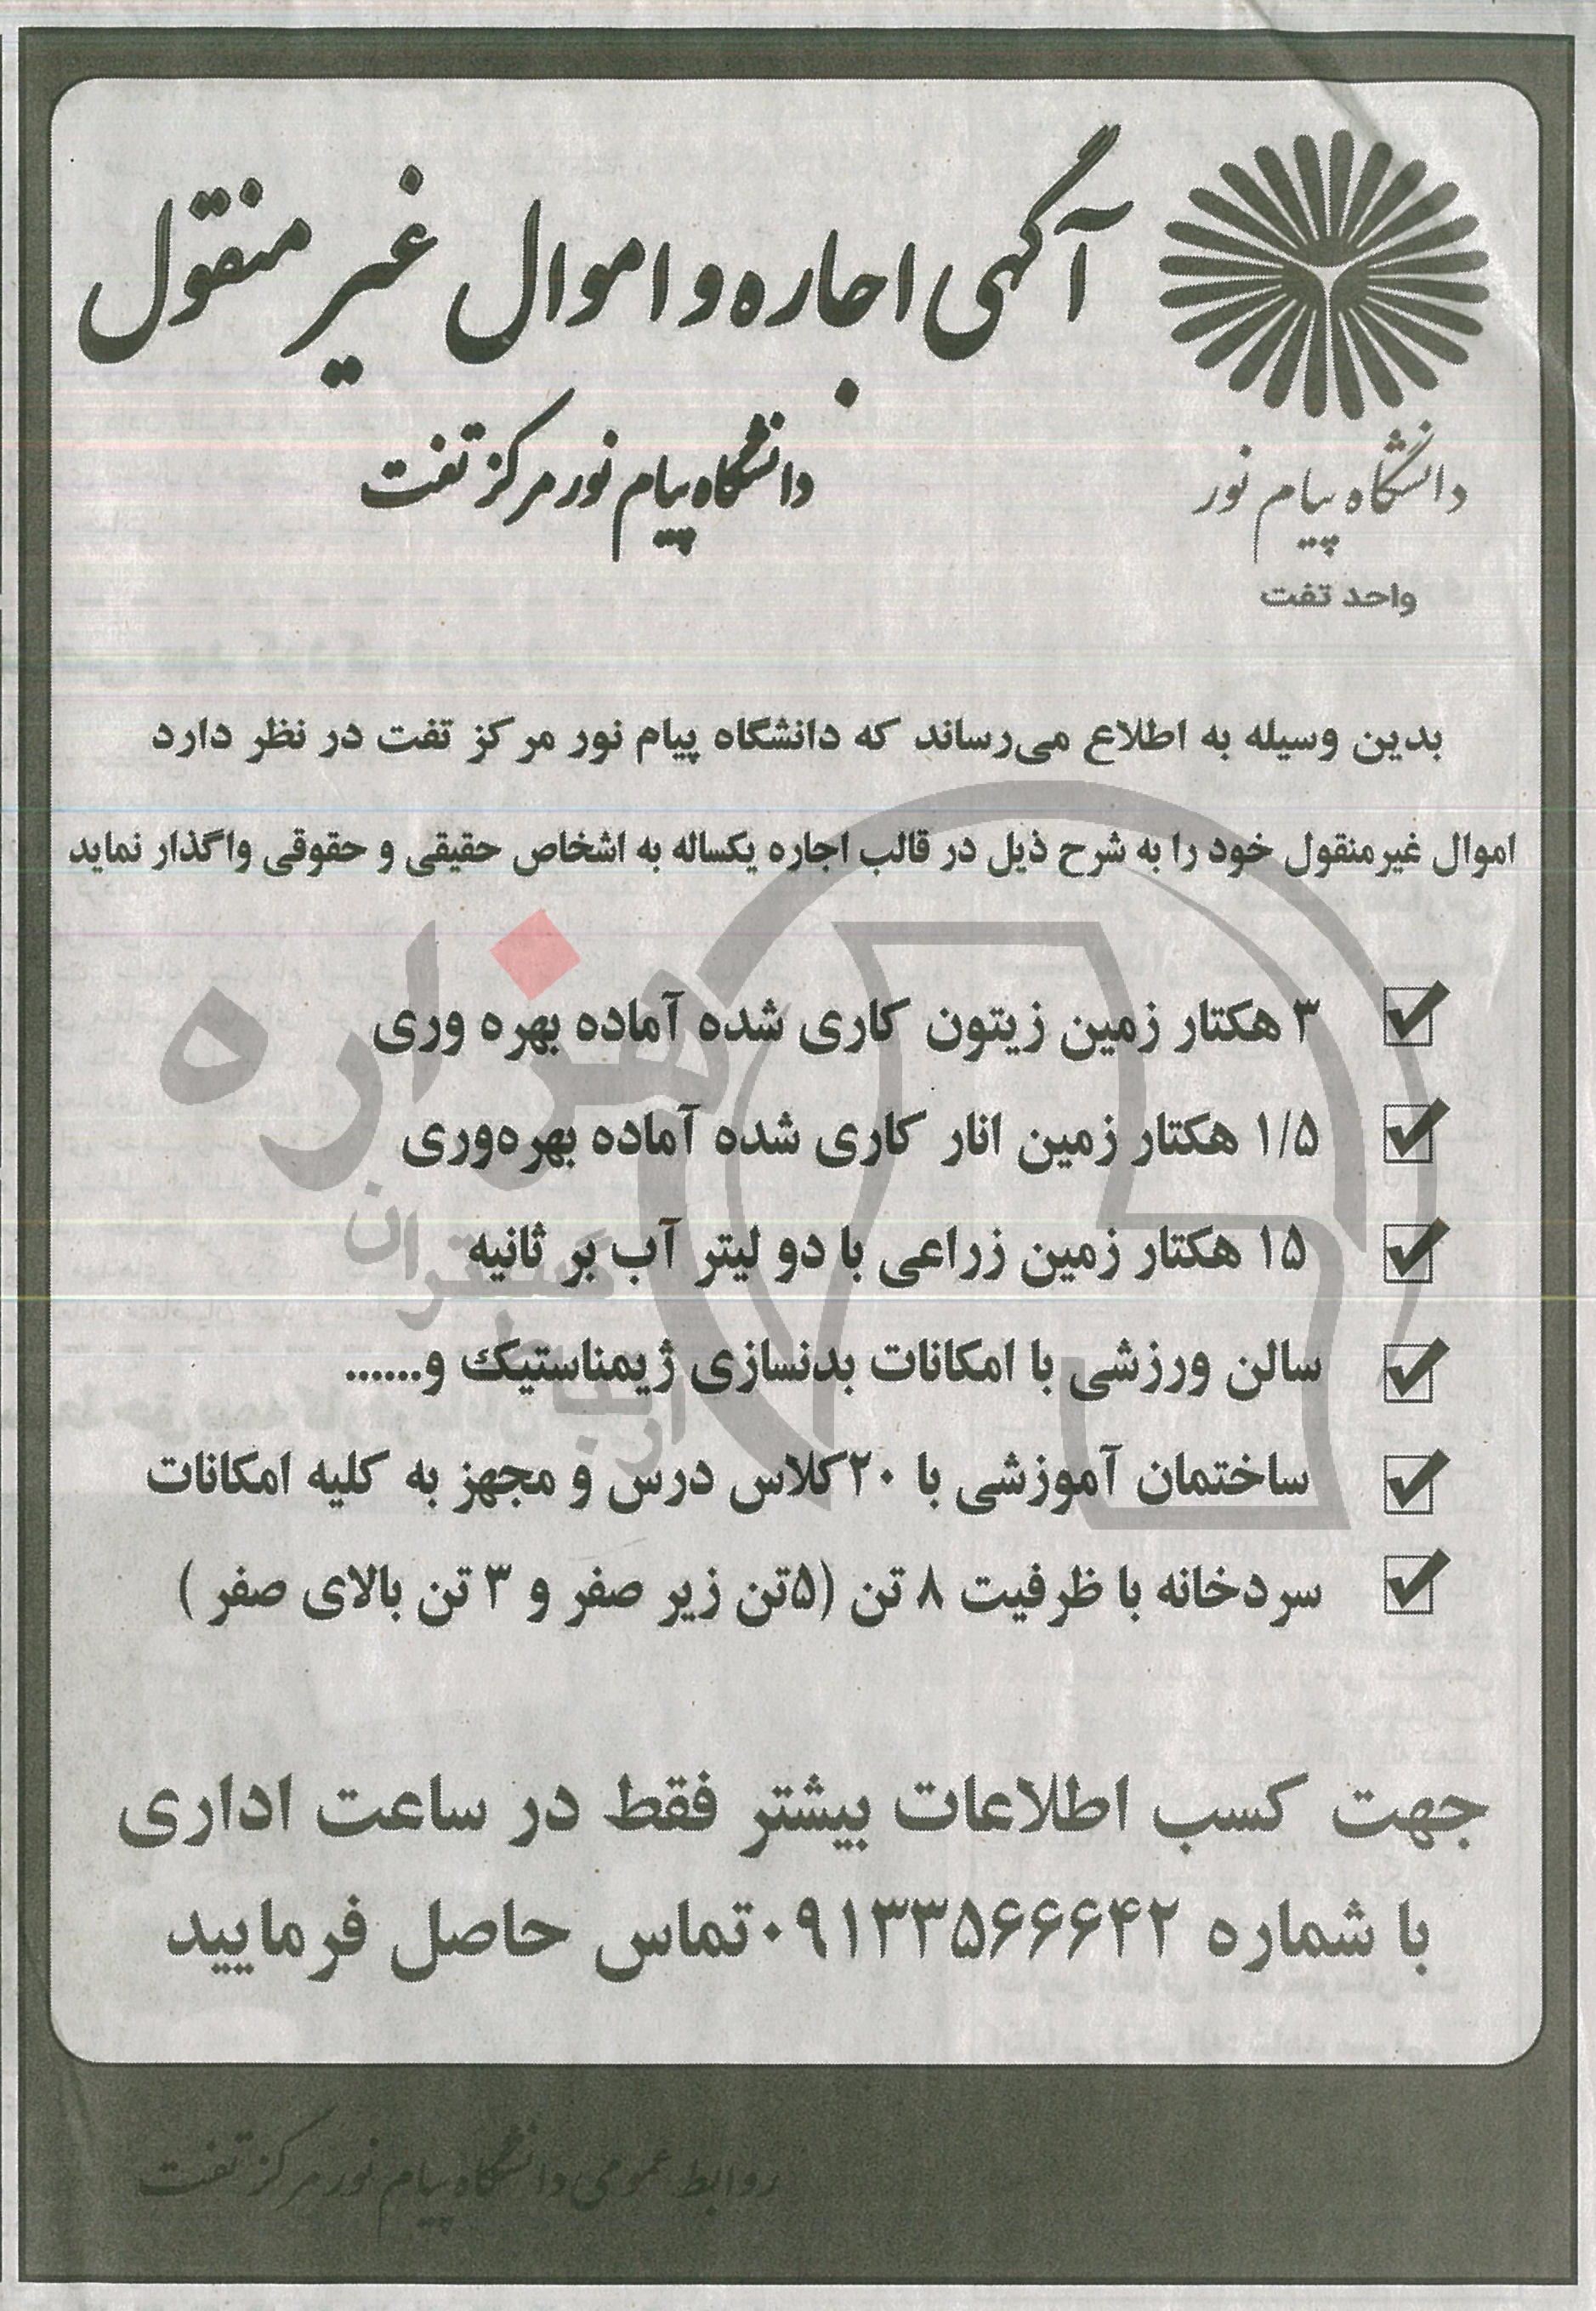 آگهی اجاره و اموال غیر منقول
دانشگاه پیام نور مرکز تفت
دانشگاه پیام نور
واحد تفت
بدین وسیله به اطلاع می‌رساند که دانشگاه پیام نور مرکز تفت در نظر دارد
اموال غیرمنقول خود را به شرح ذیل در قالب اجاره یکساله به اشخاص حقیقی و حقوقی واگذار نماید
۳ هکتار زمین زیتون کاری شده آماده بهره وری
۱/۵ هکتار زمین انار کاری شده آماده بهره‌وری
۱۵ هکتار زمین زراعی با دو لیتر آب بر ثانیه
سالن ورزشی با امکانات بدنسازی ژیمناستیک و......
ساختمان آموزشی با ۲۰کلاس درس و مجهز به کلیه امکانات
سردخانه با ظرفیت ۸ تن (۵تن زیر صفر و ۳ تن بالای صفر )
هزاره
جهت کسب اطلاعات بیشتر فقط در ساعت اداری
با شماره ۰۹۱۳۳۵۶۶۶۴۲تماس حاصل فرمایید
روابط عمومی دانشگاه پیام نور مرکز تفت